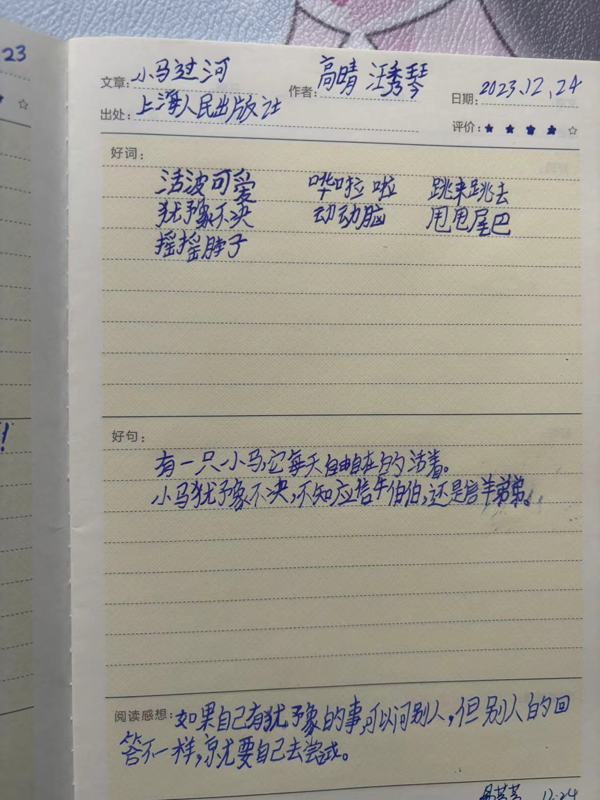 23
文章: 小马过河
作者: 高晴 汪秀琴
日期: 2023.12.24
出处: 上海人民出版社
评价: ★ ★ ★ ★ ☆
好词:
活波可爱 哗啦啦 跳来跳去
犹予象不决 动动脑 甩甩尾巴
摇摇脖子
好句:
有一只小马,它每天自由自在的活着。
小马犹予象不决,不知应信牛伯伯,还是信羊弟弟。
阅读感想: 如果自己有犹予象的事,可以问别人,但别人的回
答不一样,就要自己去尝试。
12.24